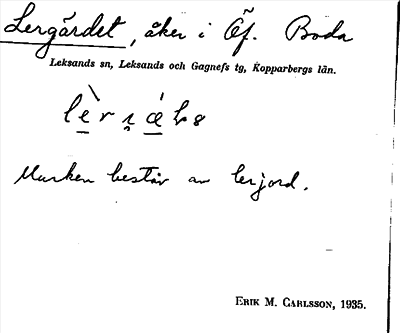 Lergärdet, åker i Öf. Boda
Leksands sn, Leksands och Gagnefs tg, Kopparbergs län.
Marken består av lerjord.
ERIK M. CARLSSON, 1935.